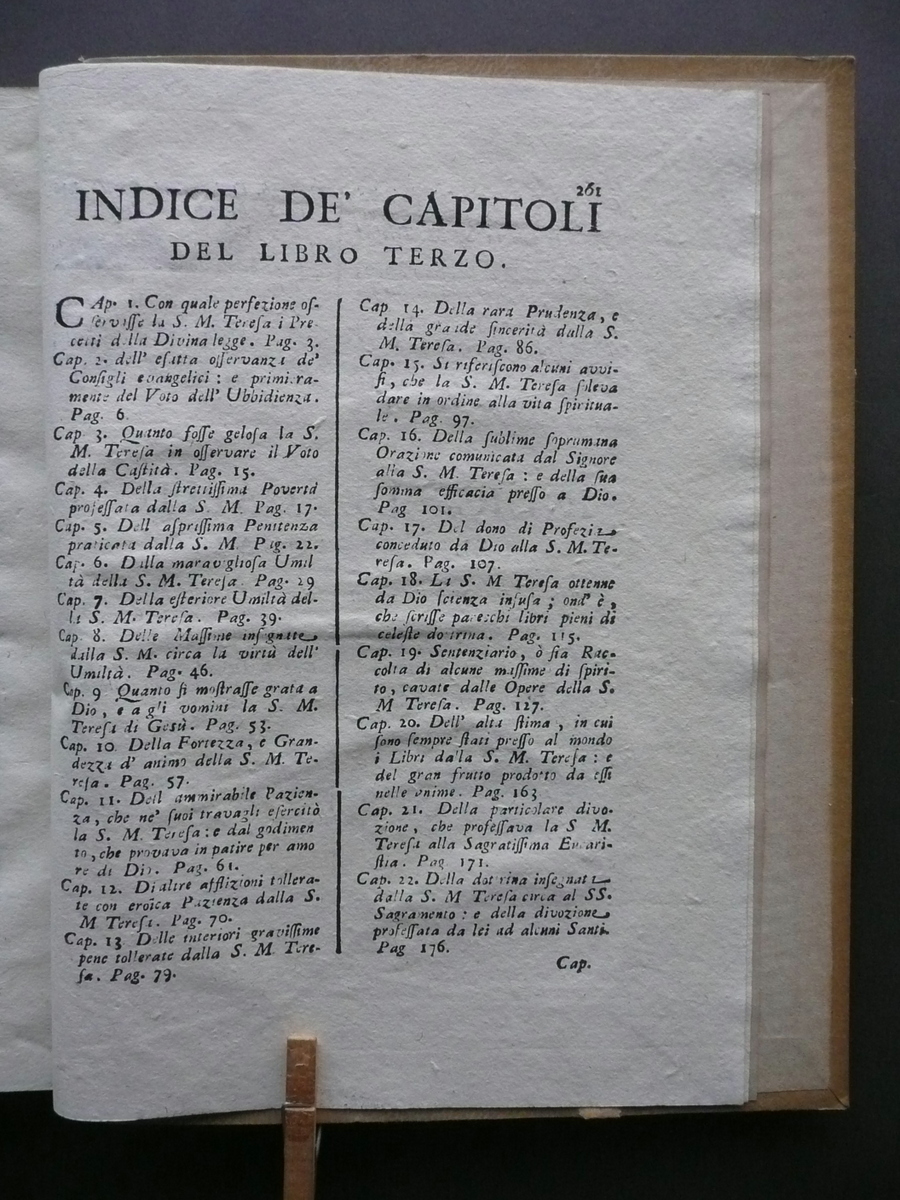 261
INDICE DE' CAPITOLI
DEL LIBRO TERZO.
CAp. 1. Con quale perfezione os-
servasse la S. M. Teresa i Pre-
cetti della Divina legge. Pag. 3.
Cap. 2. dell' esatta osservanza de'
Consigli evangelici : e primiera-
mente del Voto dell' Ubbidienza.
Pag. 6.
Cap 3. Quanto fosse gelosa la S.
M. Teresa in osservare il Voto
della Castità. Pag. 15.
Cap. 4. Della strettissima Povertà
professata dalla S. M. Pag. 17.
Cap. 5. Dell asprissima Penitenza
praticata dalla S. M. Pag. 22.
Cap. 6. Della maravigliosa Umil
tà della S. M. Teresa. Pag. 29
Cap. 7. Della esteriore Umiltà del-
la S. M. Teresa. Pag. 39.
Cap. 8. Delle Massime insegnate
dalla S. M. circa la virtù dell'
Umiltà. Pag. 46.
Cap. 9 Quanto si mostrasse grata a
Dio, e a gli uomini la S. M.
Teresa di Gesù. Pag. 53.
Cap. 10 Della Fortezza, e Gran-
dezza d' animo della S. M. Te-
resa. Pag. 57.
Cap. 11. Dell ammirabile Pazien-
za, che ne' suoi travagli esercitò
la S. M. Teresa : e dal godimen
to, che provava in patire per amo
re di Dio. Pag. 61.
Cap. 12. Di altre afflizioni tollera-
te con eroica Pazienza dalla S.
M Teresa. Pag. 70.
Cap. 13 Delle interiori gravissime
pene tollerate dalla S. M Tere-
sa. Pag. 79.
Cap 14. Della rara Prudenza, e
della grande sincerità dalla S.
M. Teresa. Pag. 86.
Cap. 15. Si riferiscono alcuni avvi-
si, che la S. M. Teresa soleva
dare in ordine alla vita spiritua-
le. Pag. 97.
Cap. 16. Della sublime soprumana
Orazione comunicata dal Signore
alla S. M. Teresa : e della sua
somma efficacia presso a Dio.
Pag 101.
Cap. 17. Del dono di Profezia
conceduto da Dio alla S. M. Te-
resa. Pag. 107.
Cap. 18. La S. M Teresa ottenne
da Dio scienza infusa ; ond' è,
che scrisse parecchi libri pieni di
celeste dottrina. Pag. 115.
Cap. 19. Sentenziario, ò sia Rac-
colta di alcune massime di spiri-
to, cavate dalle Opere della S.
M Teresa. Pag. 127.
Cap. 20. Dell' alta stima, in cui
sono sempre stati presso al mondo
i Libri dalla S. M. Teresa : e
del gran frutto prodotto da essi
nelle anime. Pag. 163
Cap. 21. Della particolare divo-
zione, che professava la S M.
Teresa alla Sagratissima Eucari-
stia. Pag. 171.
Cap. 22. Della dottrina insegnata
dalla S. M Teresa circa al SS.
Sagramento : e della divozione
professata da lei ad alcuni Santi.
Pag 176.
Cap.